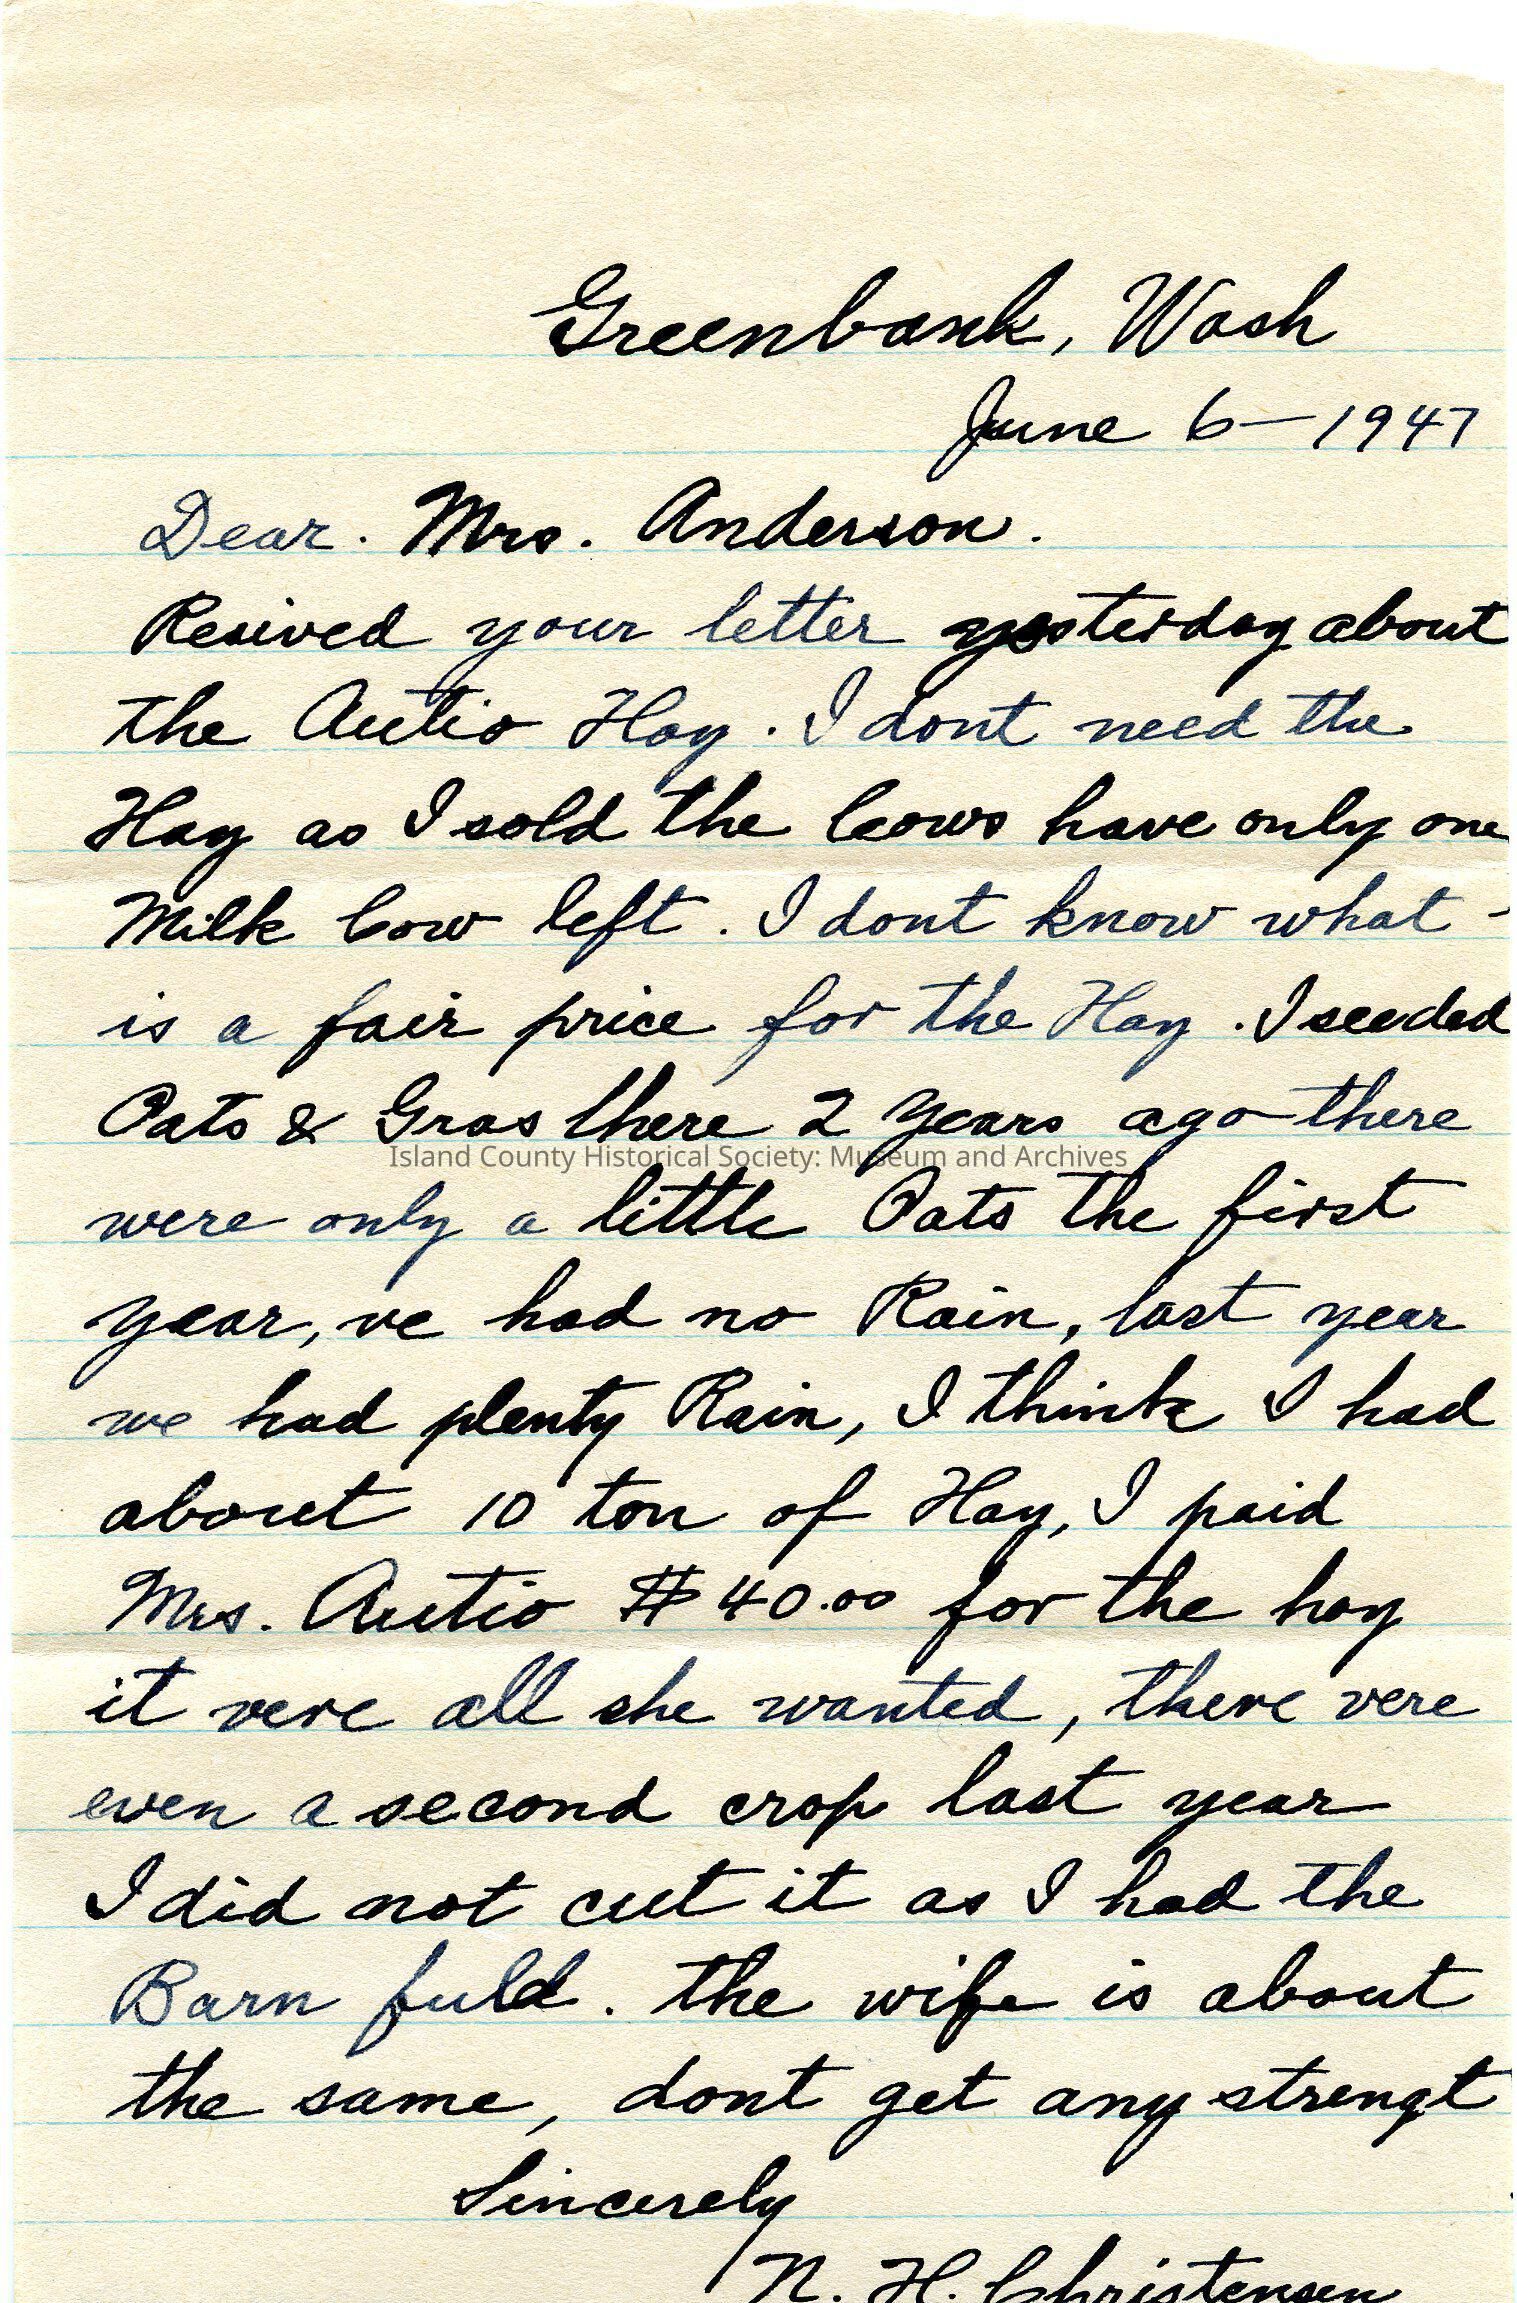 Greenbank, Wash
June 6 — 1947
Dear. Mrs. Anderson.
Resived your letter yesterday about
the Autio Hay. I dont need the
Hay as I sold the Cows have only one
Milk Cow left. I dont know what -
is a fair price for the Hay. I seeded
Oats & Gras there 2 Years ago there
Island County Historical Society: Museum and Archives
were only a little Oats the first
year, ve had no Rain, last year
we had plenty Rain, I think I had
about 10 ton of Hay, I paid
Mrs. Autio $40.00 for the hay
it vere all she wanted, there vere
even a second crop last year
I did not cut it as I had the
Barn fuld. the wife is about
the same, dont get any strengt
Sincerely
N. H. Christensen